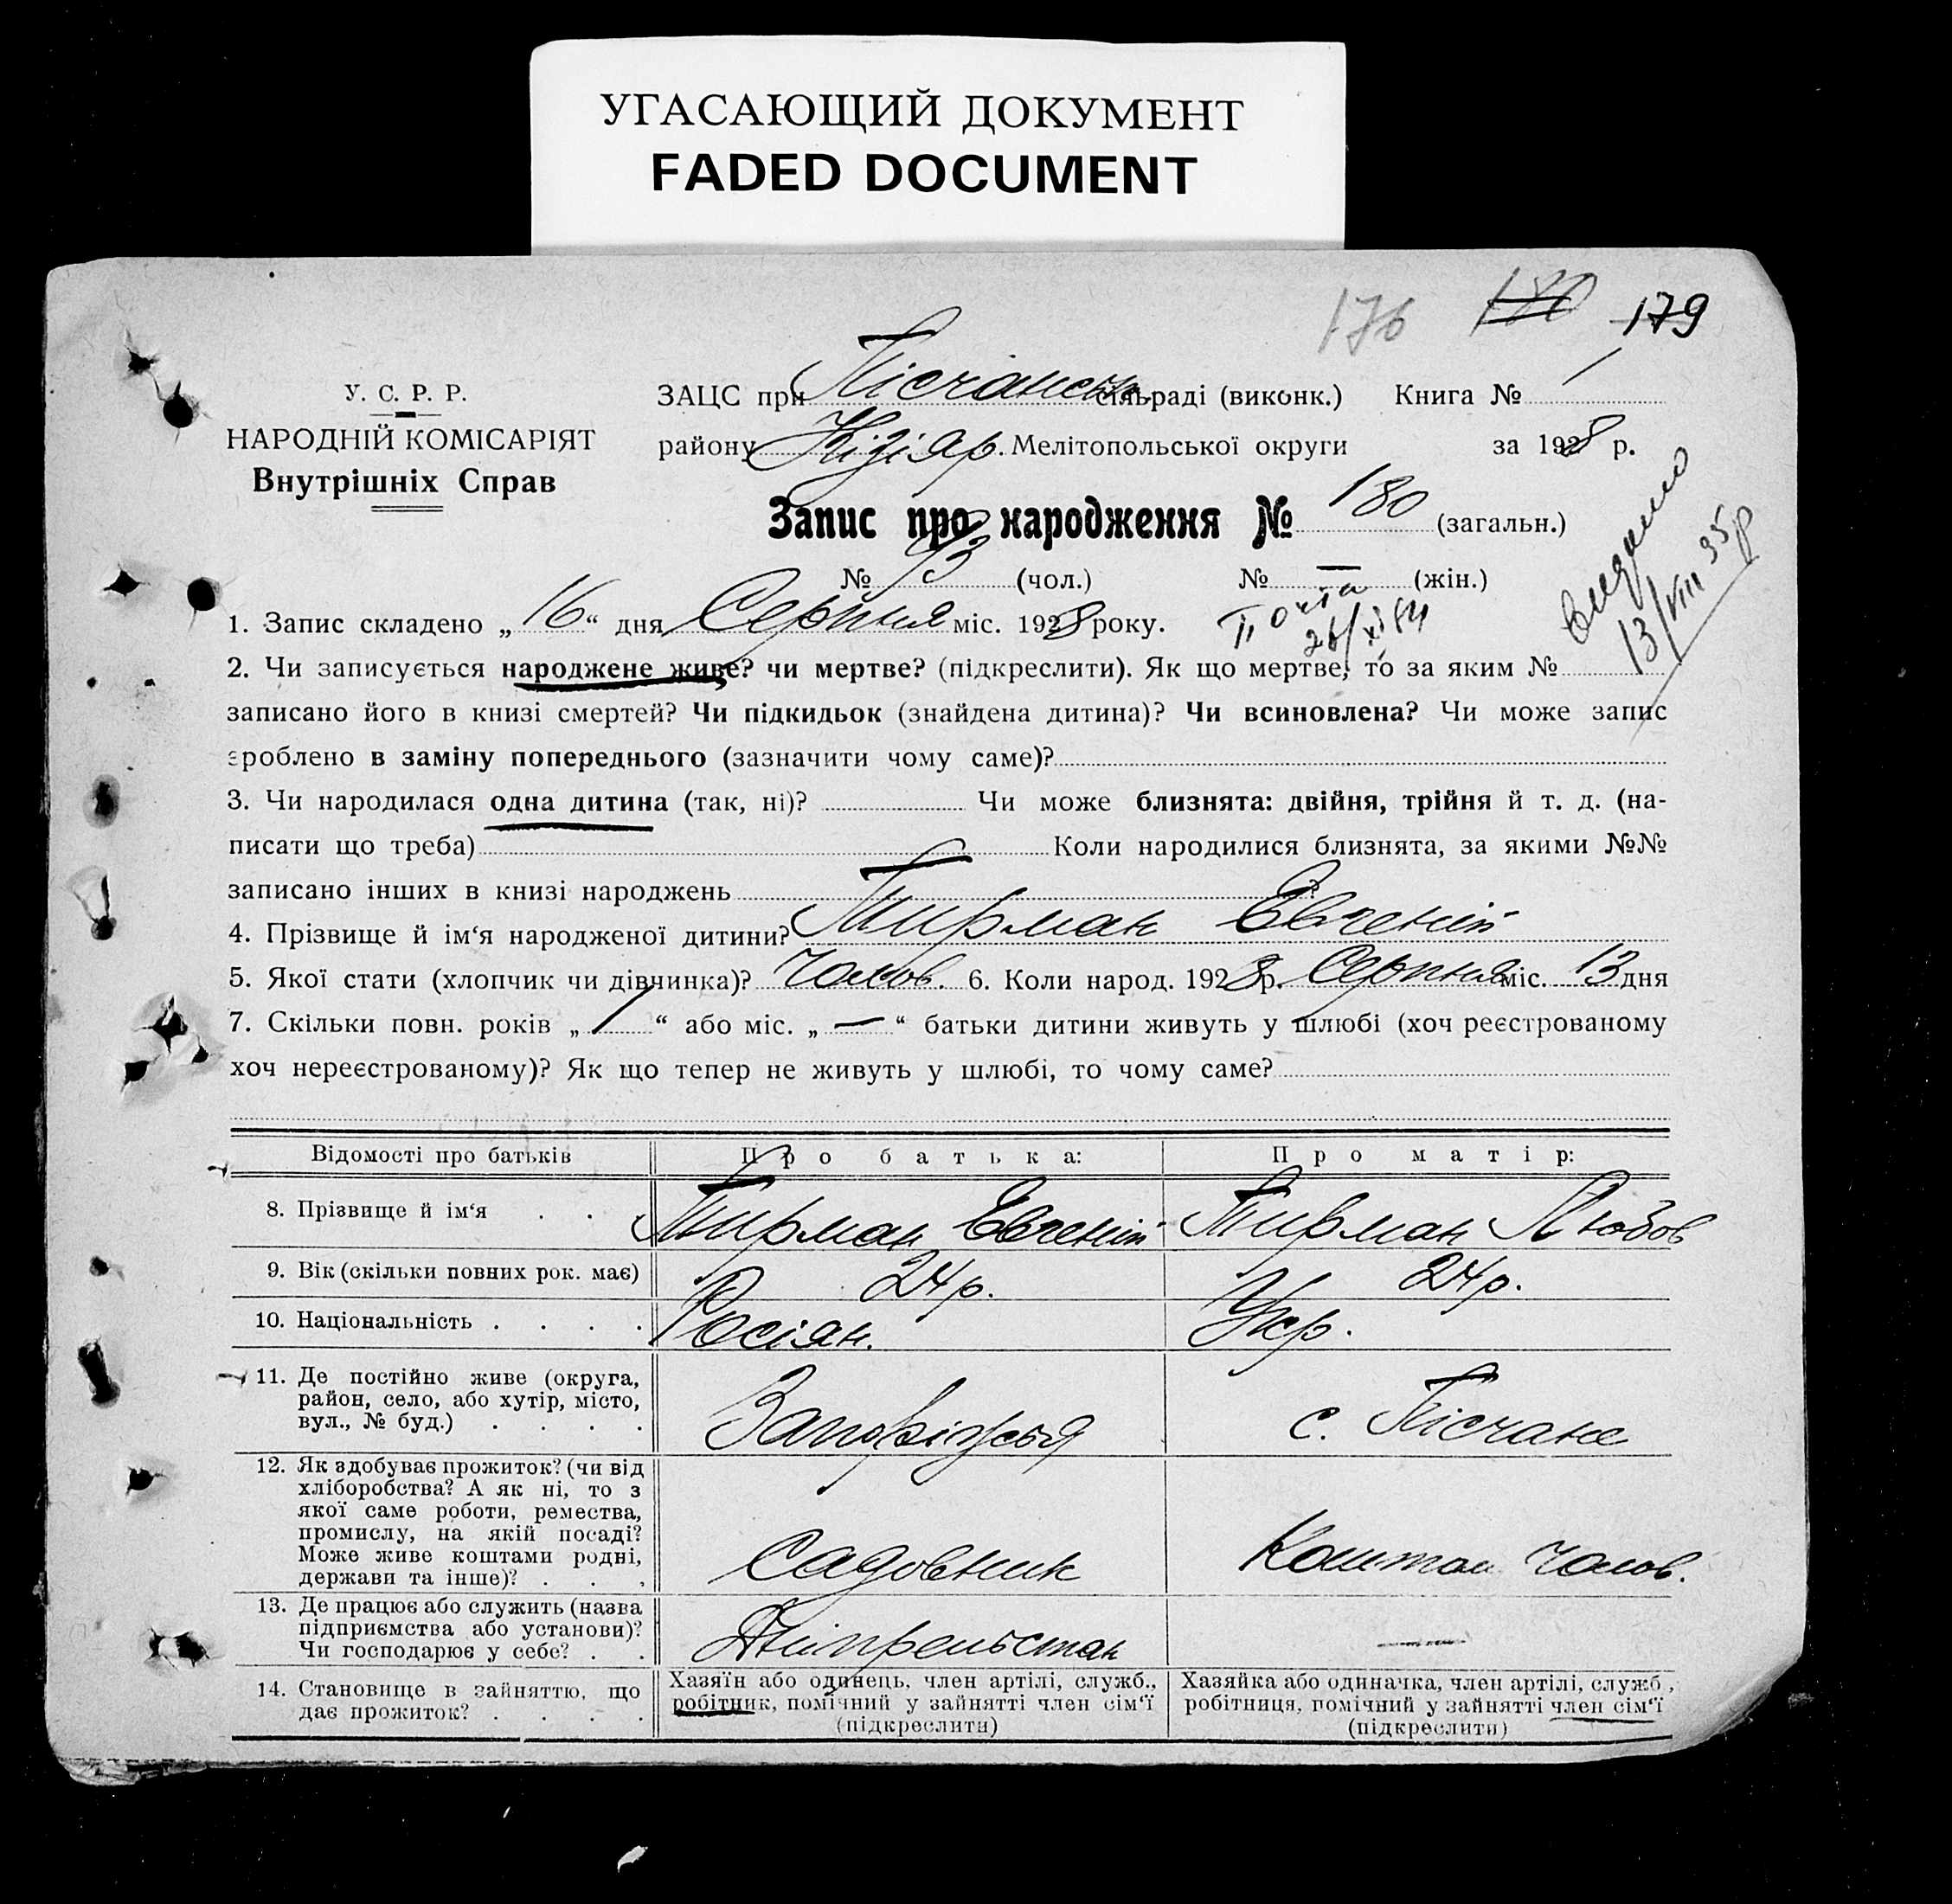 УГАСАЮЩИЙ ДОКУМЕНТ
FADED DOCUMENT
176 180 179
У. С. Р. Р.
НАРОДНІЙ КОМІСАРІЯТ
Внутрішніх Справ
ЗАЦС при Пісчанськ. сільраді (виконк.) Книга № 1
району Кізіяр. Мелітопольської округи за 1928 р.
Запис про народження № 180 (загальн.)
№ 93 (чол.) № — (жін.)
видано
13/VIII 35 р
Пошта
26/XI 84
1. Запис складено „ 16 “ дня Серпня міс. 1928 року.
2. Чи записується народжене живе? чи мертве? (підкреслити). Як що мертве, то за яким №
записано його в книзі смертей? Чи підкидьок (знайдена дитина)? Чи всиновлена? Чи може запис
зроблено в заміну попереднього (зазначити чому саме)?
3. Чи народилася одна дитина (так, ні)? Чи може близнята: двійня, трійня й т. д. (на-
писати що треба) Коли народилися близнята, за якими №№
записано інших в книзі народжень ?
4. Прізвище й ім‘я народженої дитини? Тирман Евгеній
5. Якої стати (хлопчик чи дівчинка)? Чолов. 6. Коли народ. 1928 р. Серпня міс. 13 дня
7. Скільки повн. років „ 1 “ або міс. „ — “ батьки дитини живуть у шлюбі (хоч реєстрованому
хоч нереєстрованому)? Як що тепер не живуть у шлюбі, то чому саме?
Відомості про батьків Про батька: Про матір:
8. Прізвище й ім‘я . . . Тирман Евгеній Тирман Любов
9. Вік (скільки повних рок. має) 24 р. 24 р.
10. Національність . . . . Росіян. Укр.
11. Де постійно живе (округа,
район, село, або хутір, місто,
вул., № буд.) . . . .
Запоріжжя с. Пісчане
12. Як здобуває прожиток? (чи від
хліборобства? А як ні, то з
якої саме роботи, ремества,
промислу, на якій посаді?
Може живе коштами родні,
держави та інше)? . . .
Садовник Коштом чолов.
13. Де працює або служить (назва
підприємства або установи)?
Чи господарює у себе? . .
Дніпрельстан —
14. Становище в зайняттю, що
дає прожиток? . . . .
Хазяїн або одинець, член артілі, служб.,
робітник, помічний у зайнятті член сім‘ї
(підкреслити)
Хазяйка або одиначка, член артілі, служб.,
робітниця, помічний у зайнятті член сім‘ї
(підкреслити)